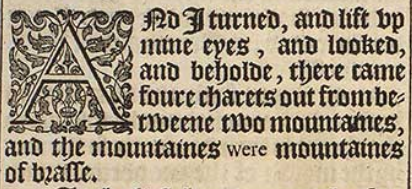 ANd I turned, and lift vp
mine eyes, and looked,
and beholde, there came
foure charets out from be-
tweene two mountaines,
and the mountaines were mountaines
of brasse.